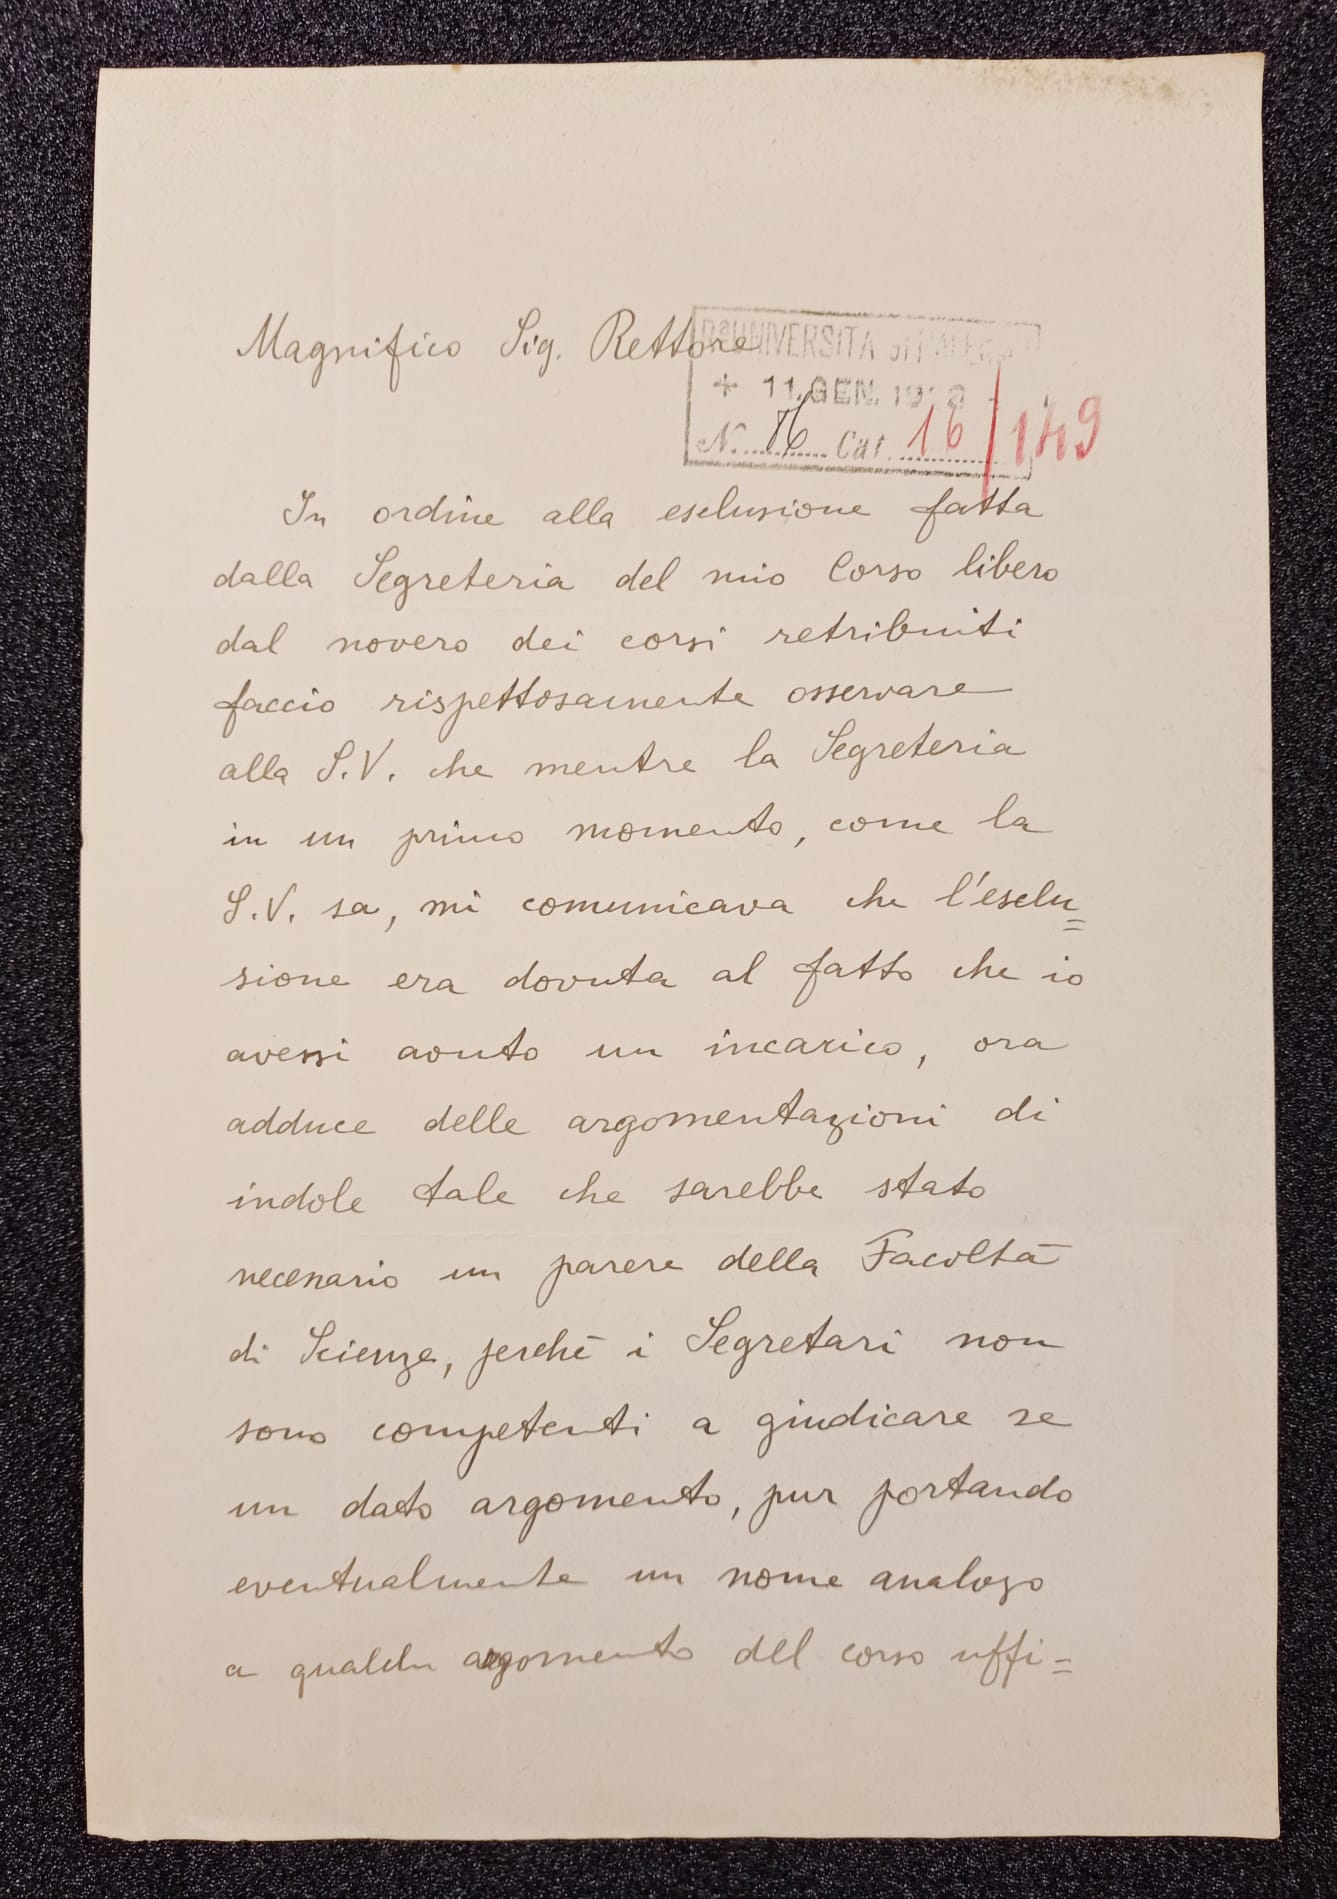 Magnifico Sig. Rettore
Rª UNIVERSITÀ DI PALERMO
11. GEN.
N. 86 Cat. 16 / 149
In ordine alla esclusione fatta
dalla Segreteria del mio Corso libero
dal novero dei corsi retribuiti
faccio rispettosamente osservare
alla S.V. che mentre la Segreteria
in un primo momento, come la
S.V. sa, mi comunicava che l'esclu=
sione era dovuta al fatto che io
avessi avuto un incarico, ora
adduce delle argomentazioni di
indole tale che sarebbe stato
necessario un parere della Facoltà
di Scienze, perchè i Segretari non
sono competenti a giudicare se
un dato argomento, pur portando
eventualmente un nome analogo
a qualche argomento del corso uffi=